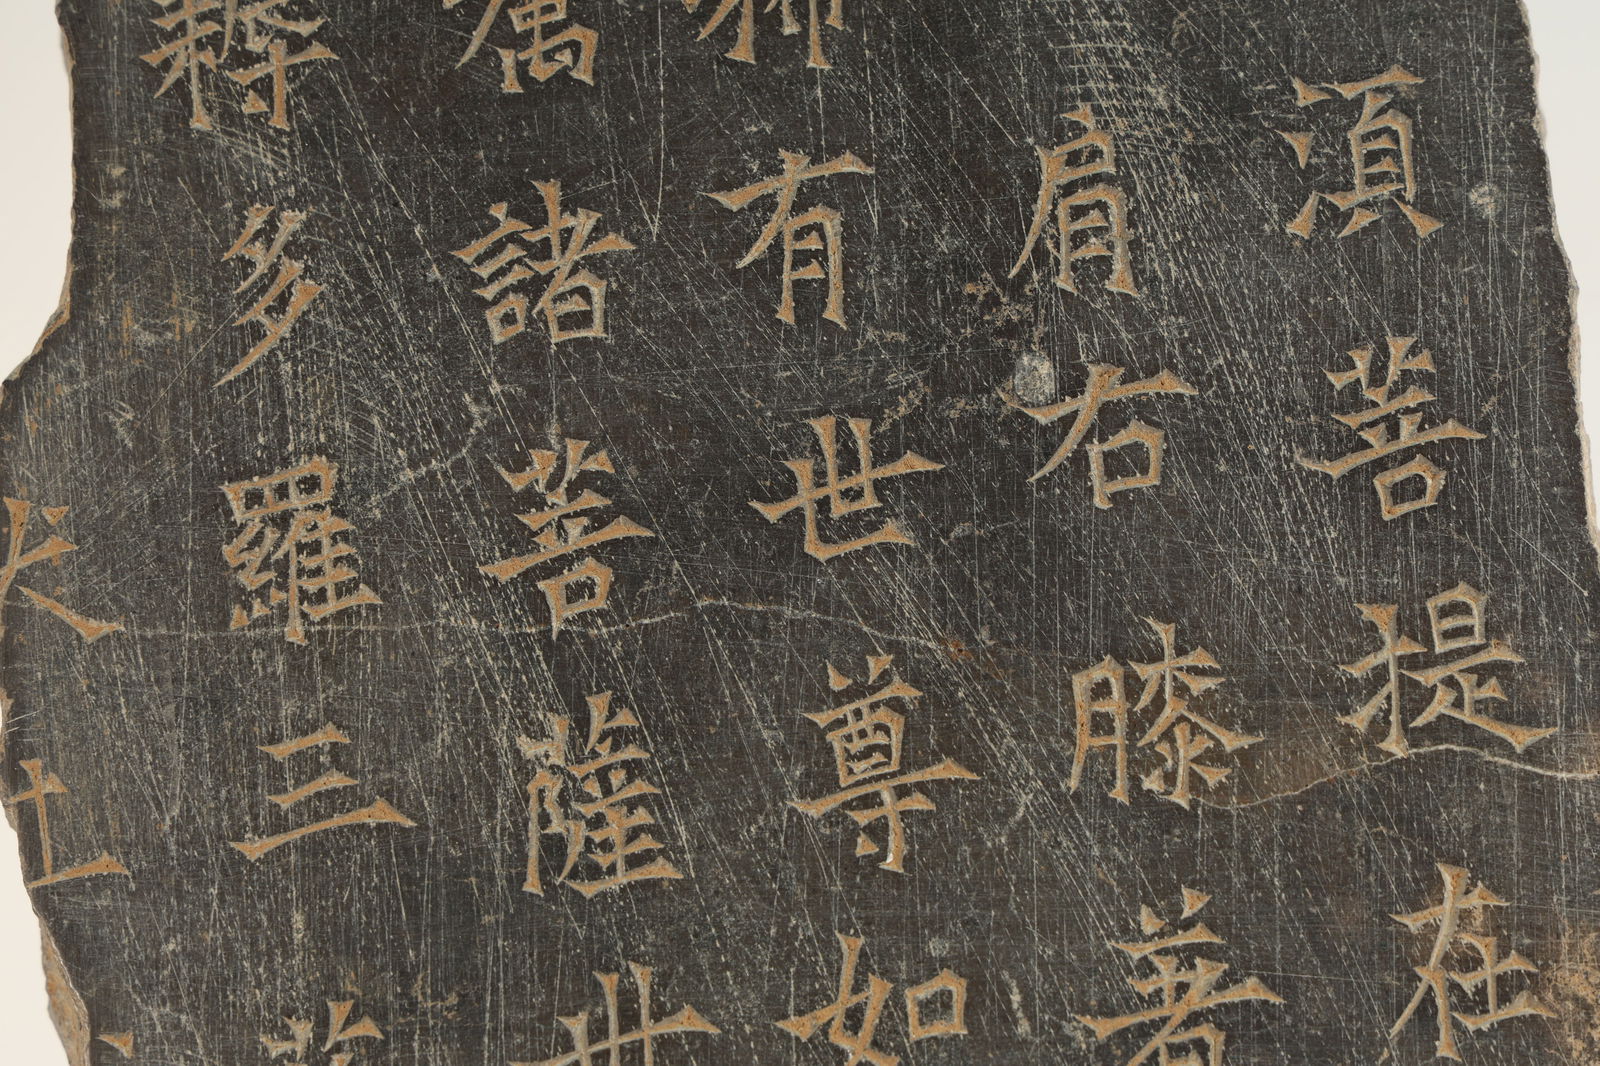 湏菩提在
肩右膝著
希有世尊如
諸菩薩世
耨多羅三